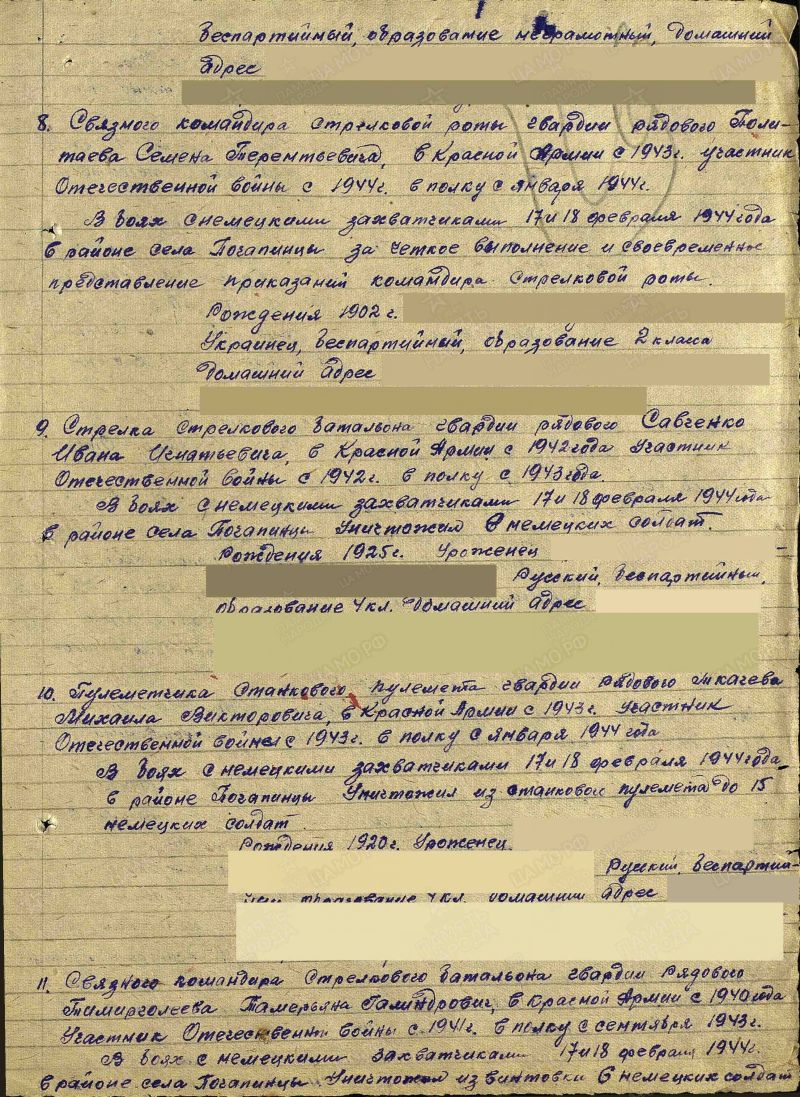 Беспартийный, образование неграмотный, Домашний
адрес
8. Связного командира стрелковой роты гвардии рядового Поли-
таева Семена Терентьевича, в Красной Армии с 1943г. участник
Отечественной войны с 1944г. в полку с января 1944г.
В боях с немецкими захватчиками 17 и 18 февраля 1944 года
в районе села Почапинцы за четкое выполнение и своевременное
представление приказаний командира стрелковой роты.
Рождения 1902 г.
Украинец, беспартийный, образование 2 класса
Домашний адрес
9. Стрелка стрелкового батальона гвардии рядового Савченко
Ивана Игнатьевича, в Красной Армии с 1942 года Участник
Отечественной войны с 1942г. в полку с 1943 года.
В боях с немецкими захватчиками 17 и 18 февраля 1944 года
в районе села Почапинцы Уничтожил немецких солдат.
Рождения 1925г. Уроженец
Русский, беспартийный,
образование 4 кл. Домашний адрес
10. Пулеметчика станкового пулемета гвардии рядового Ткачева
Михаила Викторовича, в Красной Армии с 1943г. Участник
Отечественной войны с 1943г. в полку с января 1944 года
В боях с немецкими захватчиками 17 и 18 февраля 1944 года
в районе Почапинцы Уничтожил из станковог пулемета до 15
немецких солдат.
Рождения 1920г. Уроженец
Русский, беспартий-
ный образование 4 кл. домашний адрес
11. Связного командира Стрелкового батальона гвардии рядового
Тимирголеева Тамерьяна Галиндрович, в Красной Армии с 1940 года
Участник Отечественной войны с 1941г. в полку с сентября 1943г.
В боях с немецкими захватчиками 17 и 18 февраля 1944г.
в районе села Почапинцы Уничтожил из винтовки 6 немецких солдат